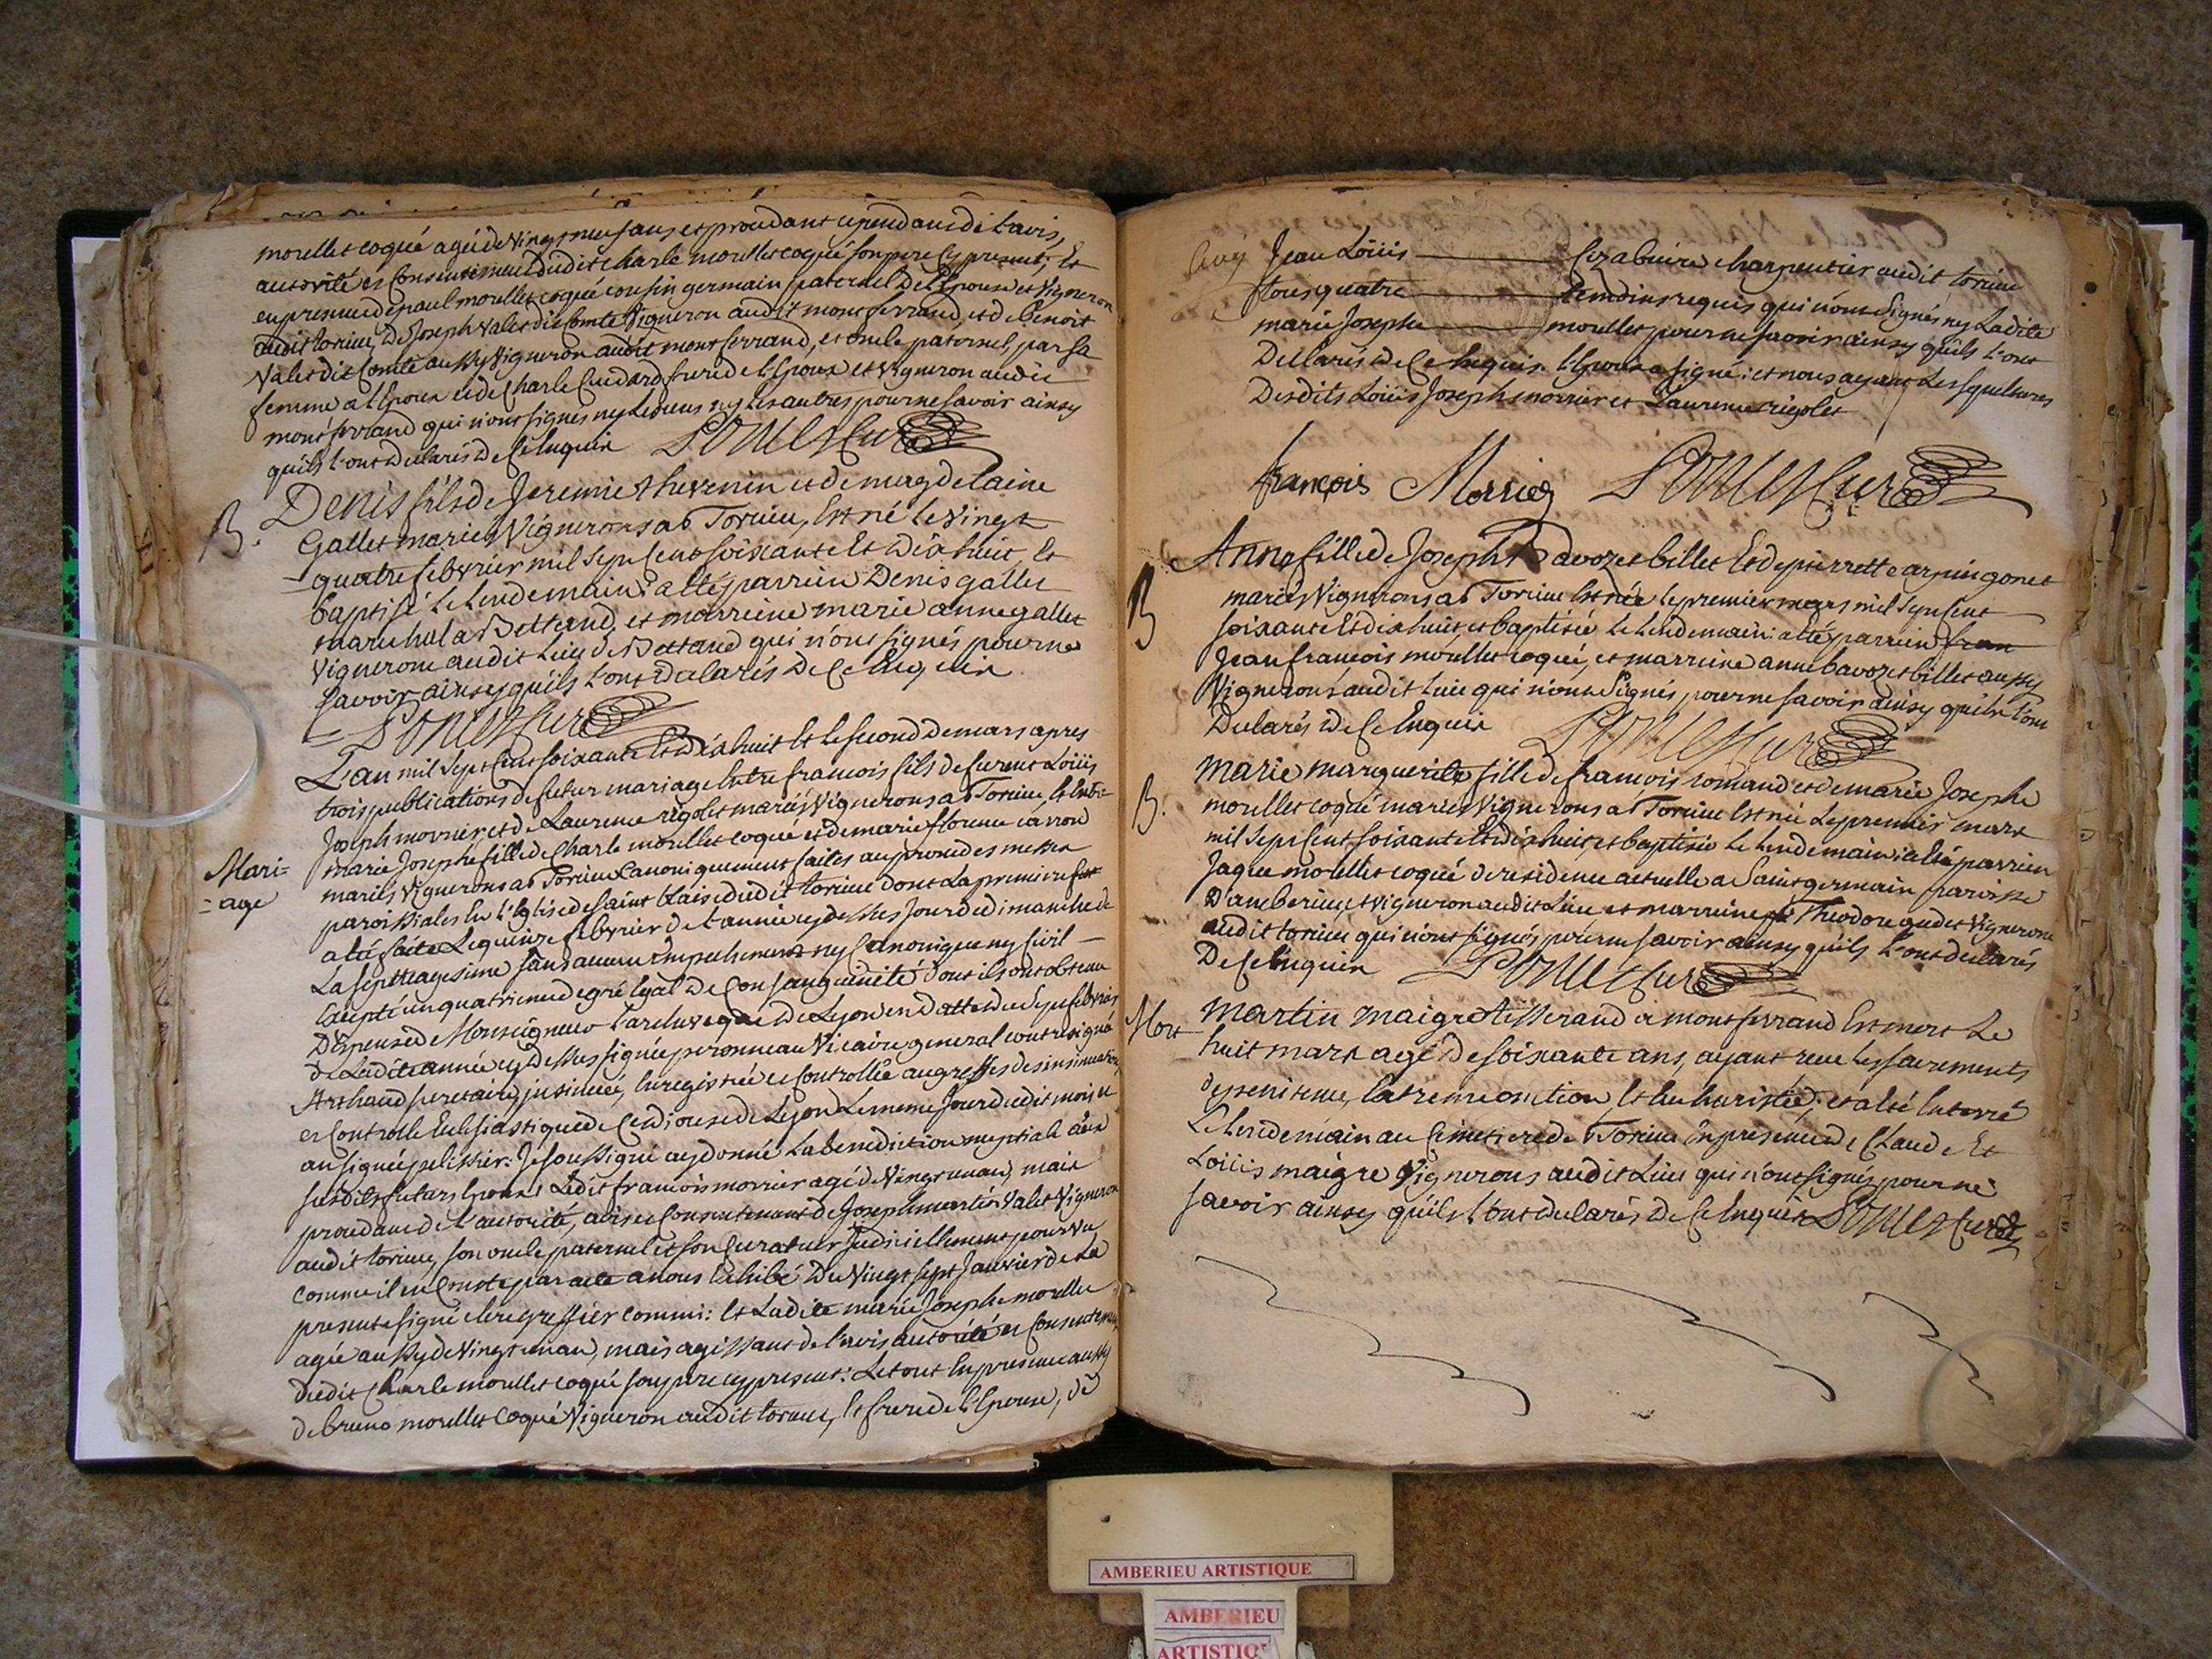 morellet coqué agé de vingt neuf ans et proudant cependant de l'avis,
autorité et Consentement dudit charle morellet coqué son pere cy present; Et
en presence de paul morellet coqué cousin germain paternel de l'Epoux et vigneron
audit torcieu, de Joseph valet dit Comte Vigneron audit montferrand, et de benoit
valet dit Comte aussy vigneron audit montferrand, et oncle paternel, par sa
femme a l'Epoux et de Charle Cudard frere de l'Epoux et vigneron audit
montferrand qui n'ont signés ny les uns ny les autres pour ne savoir ainsy
qu'ils l'ont declarés de Ce Enquis
B. Denis fils de Jeremie thevenin et de magdelaine
Gallet mariés Vignerons a Torcieu, Est né le vingt
quatre febvrier mil sept Cent soixante Et dix huit, Et
baptisé le lendemain: a eté parrein Denis gallet
marechal a Bettand, et marreine marie anne gallet
vigneronne audit lieu de Bettand qui n'ont signés pour ne
savoir ainsy qu'ils l'ont declarés de Ce Enquis
Curé
L'an mil sept Cent soixante Et dix huit Et le second de mars apres
trois publications de futur mariage Entre francois fils de furent Loüis
Joseph morrier et de Laurence rigolet mariés Vignerons a Torcieu, Et Entre
marie Josephe fille de Charle morellet coqué et de marie florence carron
Mari=
=age
mariés Vignerons a Torcieu Canoniquement faites aux prones des messes
paroissiales En l'Eglise de saint blaise dudit torcieu dont La premiere fut
a eté faite le quinze febvrier de l'année cy dessus Jour du dimanche de
La septuagesime sans aucun Empechement ny Canonique ny Civil
Excepté un quatrieme degré Egal de Consanguinité dont ils ont obtenu
Dispense de Monseigneur l'archeveque de Lyon en datte du sept febvrier
de Ladite année cy dessus signée peronneau Vicaire general contresigné
Arthaud secretaire, insinuée, Enregistrée et Controllée au greffe des insinuations
et Controlle Ecclesiastique de Ce diocese de Lyon Le meme Jour dudit mois et
an signée pelissier: Je soussigné ay donné La benediction nuptiale aux
susdits futurs Epoux; Ledit francois morrier agé de Vingt un an, mais
proudant de l'autorité, avis et Consentement de Joseph martin Valet Vigneron
audit torcieu, son oncle paternel et son Curateur Judiciellement pourvu
comme il en Conste par acte a nous Exhibé Du Vingt sept Janvier de La
presente signé clere greffier commis: Et Ladite marie Josephe morellet
agée aussy de Vingt un an, mais agissant de l'avis autorité et Consentement
dudit Charle morellet coqué son pere cy present: Le tout En presence aussy
de bruno morellet coqué Vigneron audit torcieu, Et frere de l'Epouse, de
Jean Loüis charpentier audit torcieu
tous quatre temoins requis qui n'ont signés ny Ladite
marie Josephe morellet pour ne savoir ainsy qu'ils l'ont
Declarés de Ce Enquis. L'Epoux a signé:
Desdits Loüis Joseph morrier et Laurence rigolet
françois Morrier Curé
B
Anne fille de Joseph Bavozet billet Et de pierrette carpin gonet
mariés Vignerons a Torcieu Est née le premier mars mil sept Cent
soixante Et dix huit, et baptisée Le Lendemain: a eté parrein Jean
Jean francois morellet coqué, et marreine anne bavozet billet aussy
Vignerons audit Lieu qui n'ont Signés pour ne savoir ainsy qu'ils l'ont
Declarés de Ce Enquis Curé
B.
Marie marguerite fille de francois romand et de marie Josephe
morellet coqué mariés Vignerons a Torcieu Est née Le premier mars
mil sept Cent soixante Et dix huit, et baptisée Le Lendemain: a eté parrein
Jaque morellet coqué de residence actuelle a Saint germain paroisse
D'amberieu, et vigneron audit Lieu et marreine Theodore gudet Vigneronne
audit torcieu qui n'ont signés pour ne savoir ainsy qu'ils l'ont declarés
De Ce Enquis Curé
Mort
Martin maigre tisserand a montferrand Est mort Le
huit mars agé De soixante ans, ayant receu Les sacrements
de penitence, Extreme onction, Et Eucharistie, et a eté Enterré
Le Lendemain au Cimetiere de Torcieu En presence de Claude Et
Loüis maigre Vignerons audit Lieu qui n'ont signés pour ne
savoir ainsy qu'ils l'ont declarés de Ce Enquis Curé
AMBERIEU ARTISTIQUE
AMBERIEU
ARTISTIQ